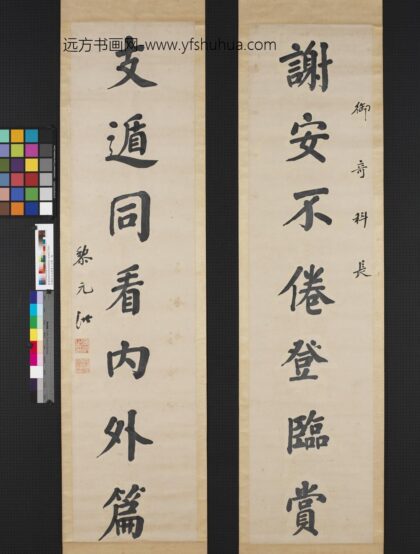 远方书画网 www.yfshuhua.com
御奇科長
謝安不倦登臨賞
支遁同看内外篇
黎元洪